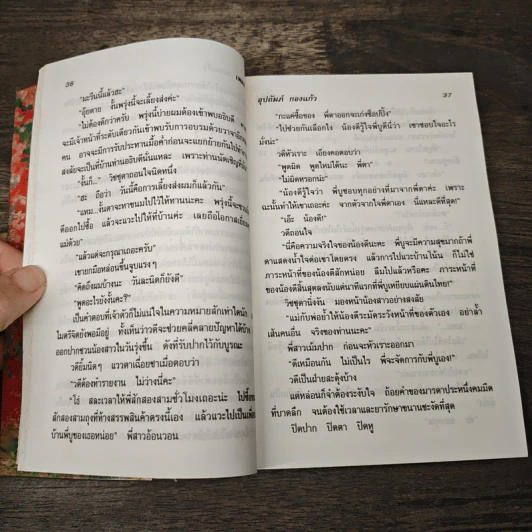 36
"มะรืนนี้แล้วฮะ"
"อุ๊ยตาย งั้นพรุ่งนี้จะเลี้ยงส่งค่ะ"
"ไม่ต้องดีกว่าครับ พรุ่งนี้บ่ายผมต้องเข้าพบอธิบดี
จะมีเจ้าหน้าที่ระดับเดียวกันเข้าพบรับการอบรมด้วยวาจา
คน อาจจะมีการรับประทานมื้อค่ำก่อนจะแยกย้ายกันไป
สงสัยจะเป็นที่บ้านท่านอธิบดีนั่นแหละ เพราะท่านนัดเชิญ
"งั้นก็..." วิชชุดาถอนใจนิดหนึ่ง
"ฮะ ถือว่า วันนี้คือการเลี้ยงส่งผมก็แล้วกัน"
"แหม...งั้นดาจะทำขนมไปไว้ให้ทานนะคะ พรุ่งนี้จะชวน
ดีออกไปซื้อ แล้วจะแวะไปให้ที่บ้านค่ะ เลยถือโอกาส
แม่ด้วย"
"แล้วแต่จะกรุณาเถอะครับ"
เขายกมือหล่อนขึ้นจูบแรงๆ
"คิดถึงผมบ้างนะ วันละนิดก็ยังดี"
"พูดอะไรยังงั้นคะ?"
เป็นคำตอบที่เจ้าตัวก็ไม่แน่ใจในความหมายสักเท่าใดนัก
ไมตรีจิตยังพอมีอยู่ ทั้งเห็นว่าควรจะช่วยคลี่คลายปัญหาให้บ้าง
ออกปากชวนน้องสาวในวันรุ่งขึ้น ดังที่รับปากไว้กับบูรณะ
วดียิ้มนิดๆ แววตาเฉื่อยชาเมื่อตอบว่า
"วดีต้องทำรายงาน ไม่ว่างนี้คะ"
"โธ่ สละเวลาให้พี่สักสองสามชั่วโมงเถอะน่ะ ไปซื้อ
สักสองสามถุงที่ห้างสรรพสินค้าตรงนี้เอง แล้วแวะไปเป็นเพื่อน
บ้านพี่บูของเธอหน่อย" พี่สาวอ้อนวอน
อุปถัมภ์ กองแก้ว
37
"กะแค่ซื้อของ พี่ดาออกจะเก่งช็อปปิ้ง"
"ไปช่วยกันเลือกไง น้องดีรู้ใจพี่บูดีนี่ว่า เขาชอบใจอะไร
มั่งน่ะ"
วดีหัวเราะ เอียงคอตอบว่า
"พูดผิด พูดใหม่ได้นะ พี่ดา"
"ไม่ผิดหรอกน่ะ"
"น้องดีรู้ใจว่า พี่บูชอบทุกอย่างที่มาจากพี่ดาค่ะ เพราะ
ฉะนั้นทำให้เขาเถอะค่ะ จากตัวจากใจพี่ดาเอง นี่แหละดีที่สุด"
"เอ๊ะ น้องดี!"
วดีถอนใจ
"นี่คือความจริงใจของน้องดีนะคะ พี่บูจะมีความสุขมากถ้าพี่
ดาแสดงน้ำใจต่อเขาโดยตรง แล้วการไปแวะบ้านโน้น ก็ไม่ใช่
ภาระหน้าที่ของน้องดีสักหน่อย ลืมไปแล้วหรือคะ ภาระหน้าที่
ของน้องดีสิ้นสุดลงนับแต่นาทีแรกที่พี่บูเหยียบแผ่นดินไทย!"
วิชชุดานิ่งงัน มองหน้าน้องสาวอย่างสงสัย
"แม่กับพ่อย้ำให้น้องดีระมัดระวังหน้าที่ของตัวเอง อย่าล้ำ
เส้นคนอื่น จริงของท่านนะคะ"
พี่สาวเม้มปาก ก่อนจะหัวเราะออกมา
"ดีเหมือนกัน ไม่เป็นไร พี่จะจัดการกับพี่บูเอง!"
วดีเป็นฝ่ายสะดุ้งบ้าง
แต่หล่อนก็จำต้องระงับใจ ถ้อยคำของมารดาประหนึ่งคมมีด
ที่บาดลึก จนต้องใช้เวลาและยารักษาขนานชะงัดที่สุด
ปิดปาก ปิดตา ปิดหู